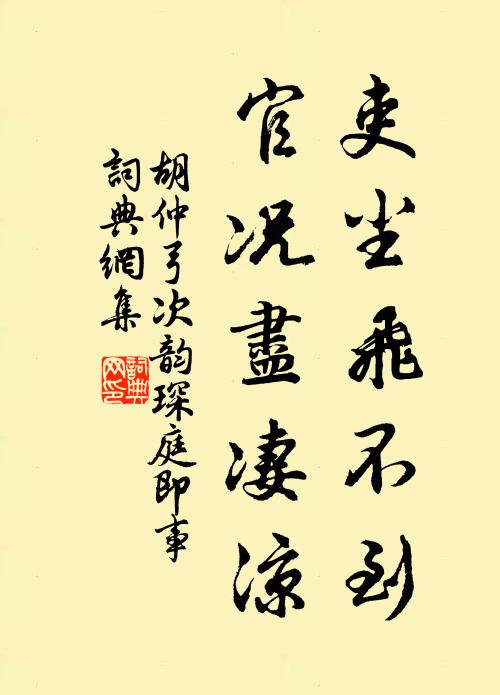 吏尘飛不到
官况盡凄涼
胡仲弓次韵琛庭即事
詞典網集
詞典
网印